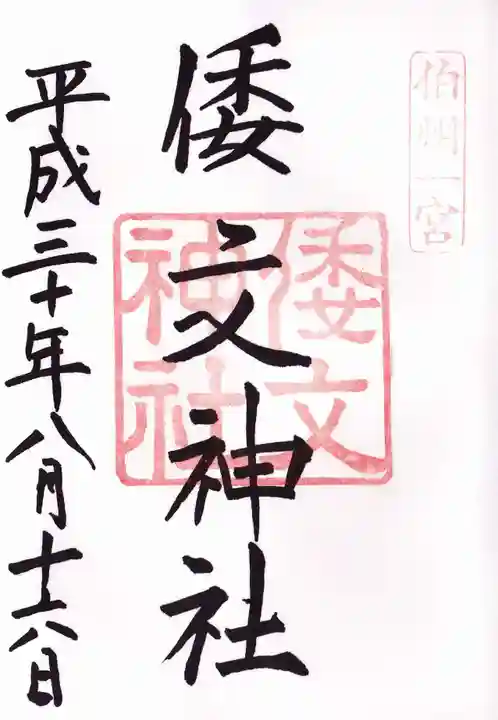 伯州一宮
倭文神社
倭文
神社
平成三十年八月十六日